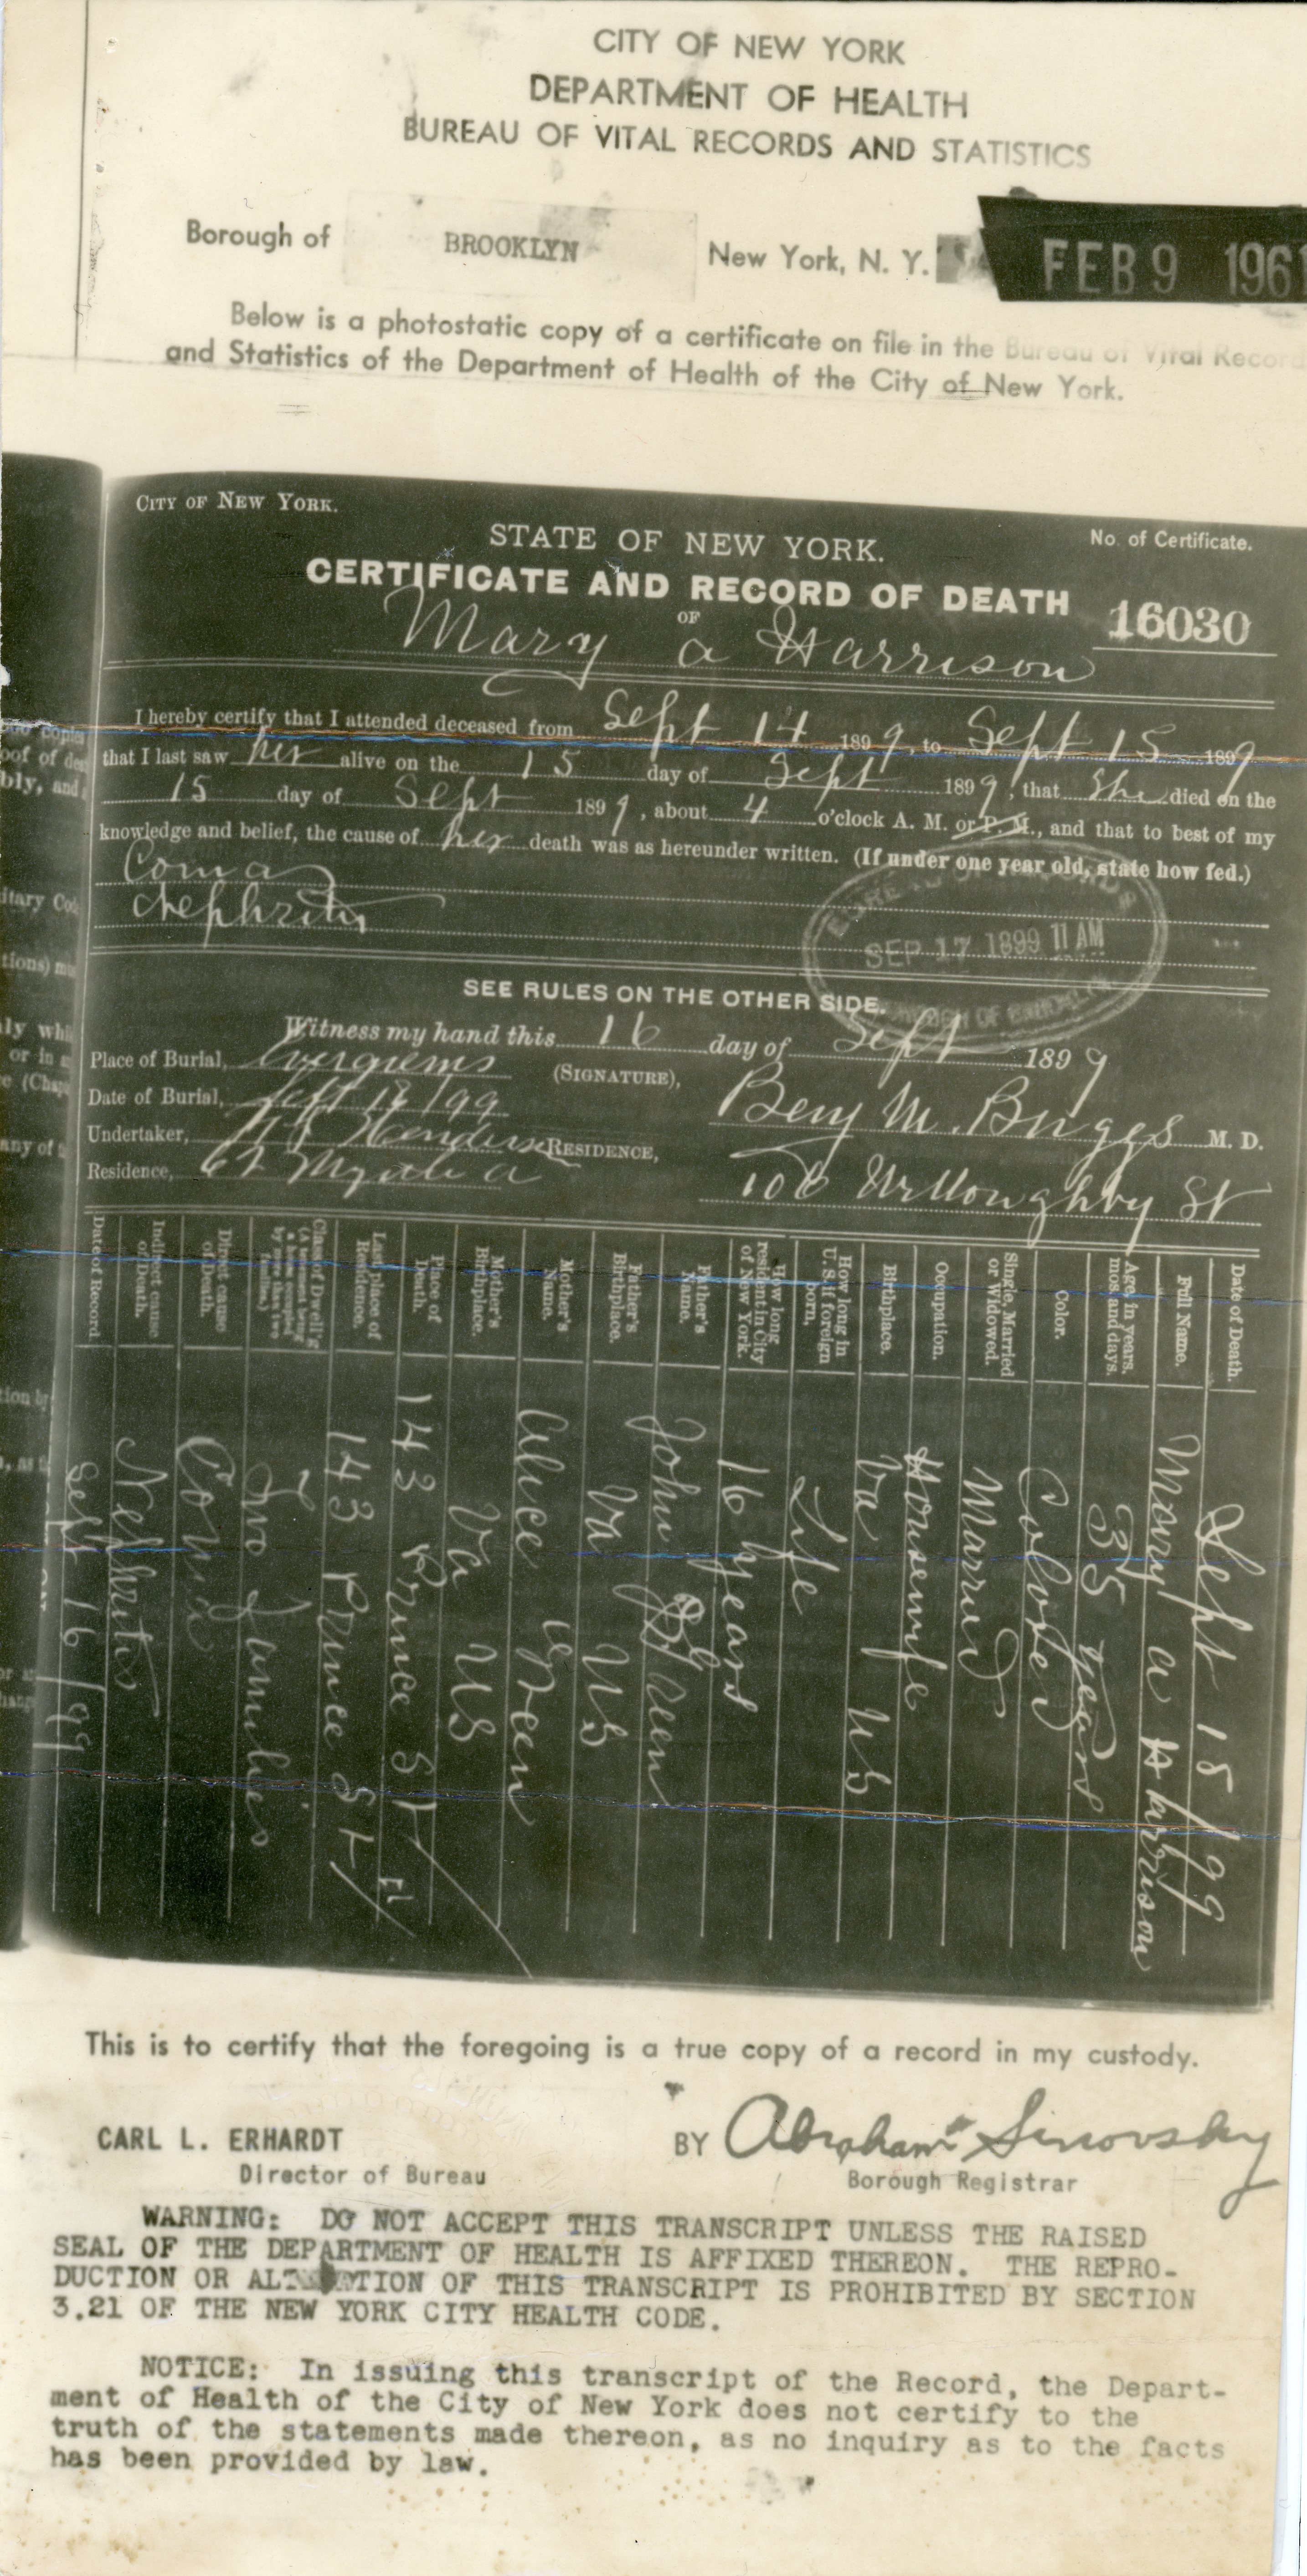 CITY OF NEW YORK
DEPARTMENT OF HEALTH
BUREAU OF VITAL RECORDS AND STATISTICS
Borough of BROOKLYN New York, N. Y. FEB 9 1961
Below is a photostatic copy of a certificate on file in the Bureau of Vital Record
and Statistics of the Department of Health of the City of New York.
CITY OF NEW YORK.
No. of Certificate.
STATE OF NEW YORK.
CERTIFICATE AND RECORD OF DEATH
16030
OF
Mary a Harrison
I hereby certify that I attended deceased from Sept 14 1899, to Sept 15 1899
that I last saw her alive on the 15 day of Sept 1899, that She died on the
15 day of Sept 1899, about 4 o'clock A. M. or P. M., and that to best of my
knowledge and belief, the cause of her death was as hereunder written. (If under one year old, state how fed.)
Coma
Nephritis
SEP 17 1899 11 AM
SEE RULES ON THE OTHER SIDE.
Witness my hand this 16 day of Sept 1899
Place of Burial, Evergreens
(SIGNATURE), Benj M. Briggs M. D.
Date of Burial, Sept 18/99
Undertaker,
RESIDENCE, 106 Willoughby St
Residence, 62 Myrtle a
Date of Death. Sept 15/99
Full Name. Mary a Harrison
Age in years, mos. and days. 35 years
Color. Colored
Single, Married or Widowed. Married
Occupation. Housewife
Birthplace. Va US
How long in U.S. if foreign born. Life
How long resident in City of New York. 16 years
Father's Name. John Green
Father's Birthplace. Va US
Mother's Name. Alice Green
Mother's Birthplace. Va US
Place of Death. 143 Prince St
Last place of Residence. 143 Prince St
Class of Dwell'g (A tenement being a house occupied by more than two families.) Two families
Direct cause of Death. Coma
Indirect cause of Death. Nephritis
Date of Record Sept 16/99
This is to certify that the foregoing is a true copy of a record in my custody.
CARL L. ERHARDT
Director of Bureau
BY Abraham Sinovsky
Borough Registrar
WARNING: DO NOT ACCEPT THIS TRANSCRIPT UNLESS THE RAISED
SEAL OF THE DEPARTMENT OF HEALTH IS AFFIXED THEREON. THE REPRO-
DUCTION OR ALTERATION OF THIS TRANSCRIPT IS PROHIBITED BY SECTION
3.21 OF THE NEW YORK CITY HEALTH CODE.
NOTICE: In issuing this transcript of the Record, the Depart-
ment of Health of the City of New York does not certify to the
truth of the statements made thereon, as no inquiry as to the facts
has been provided by law.